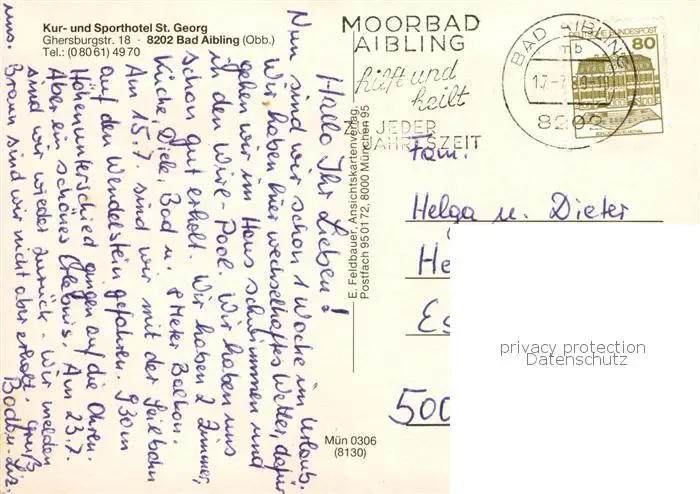 Kur- und Sporthotel St. Georg
Ghersburgstr. 18 · 8202 Bad Aibling (Obb.)
Tel.: (0 80 61) 49 70
Hallo Ihr Lieben!
Nun sind wir schon 1 Woche im Urlaub.
Wir haben hier wechselhaftes Wetter, dafür
gehen wir im Haus schwimmen und
in den Wirl-Pool. Wir haben uns
schon gut erholt. Wir haben 2 Zimmer,
Küche, Diele, Bad u. 8 Meter Balkon.
Am 15.7. sind wir mit der Seilbahn
auf den Wendelstein gefahren. 930 m
Höhenunterschied gingen auf die Ohren.
Aber ein schönes Erlebnis. Am 23.7.
sind wir wieder zurück. Wir melden
uns.
Braun sind wir nicht aber erholt. Gruß
E. Feldbauer, Ansichtskartenverlag,
Postfach 95 01 72, 8000 München 95
Mün 0306
(8130)
MOORBAD
AIBLING
hilft und
heilt
ZU JEDER
JAHRESZEIT
BAD AIBLING
mb
8202
80
Fam.
Helga u. Dieter
He
Es
500
privacy protection
Datenschutz